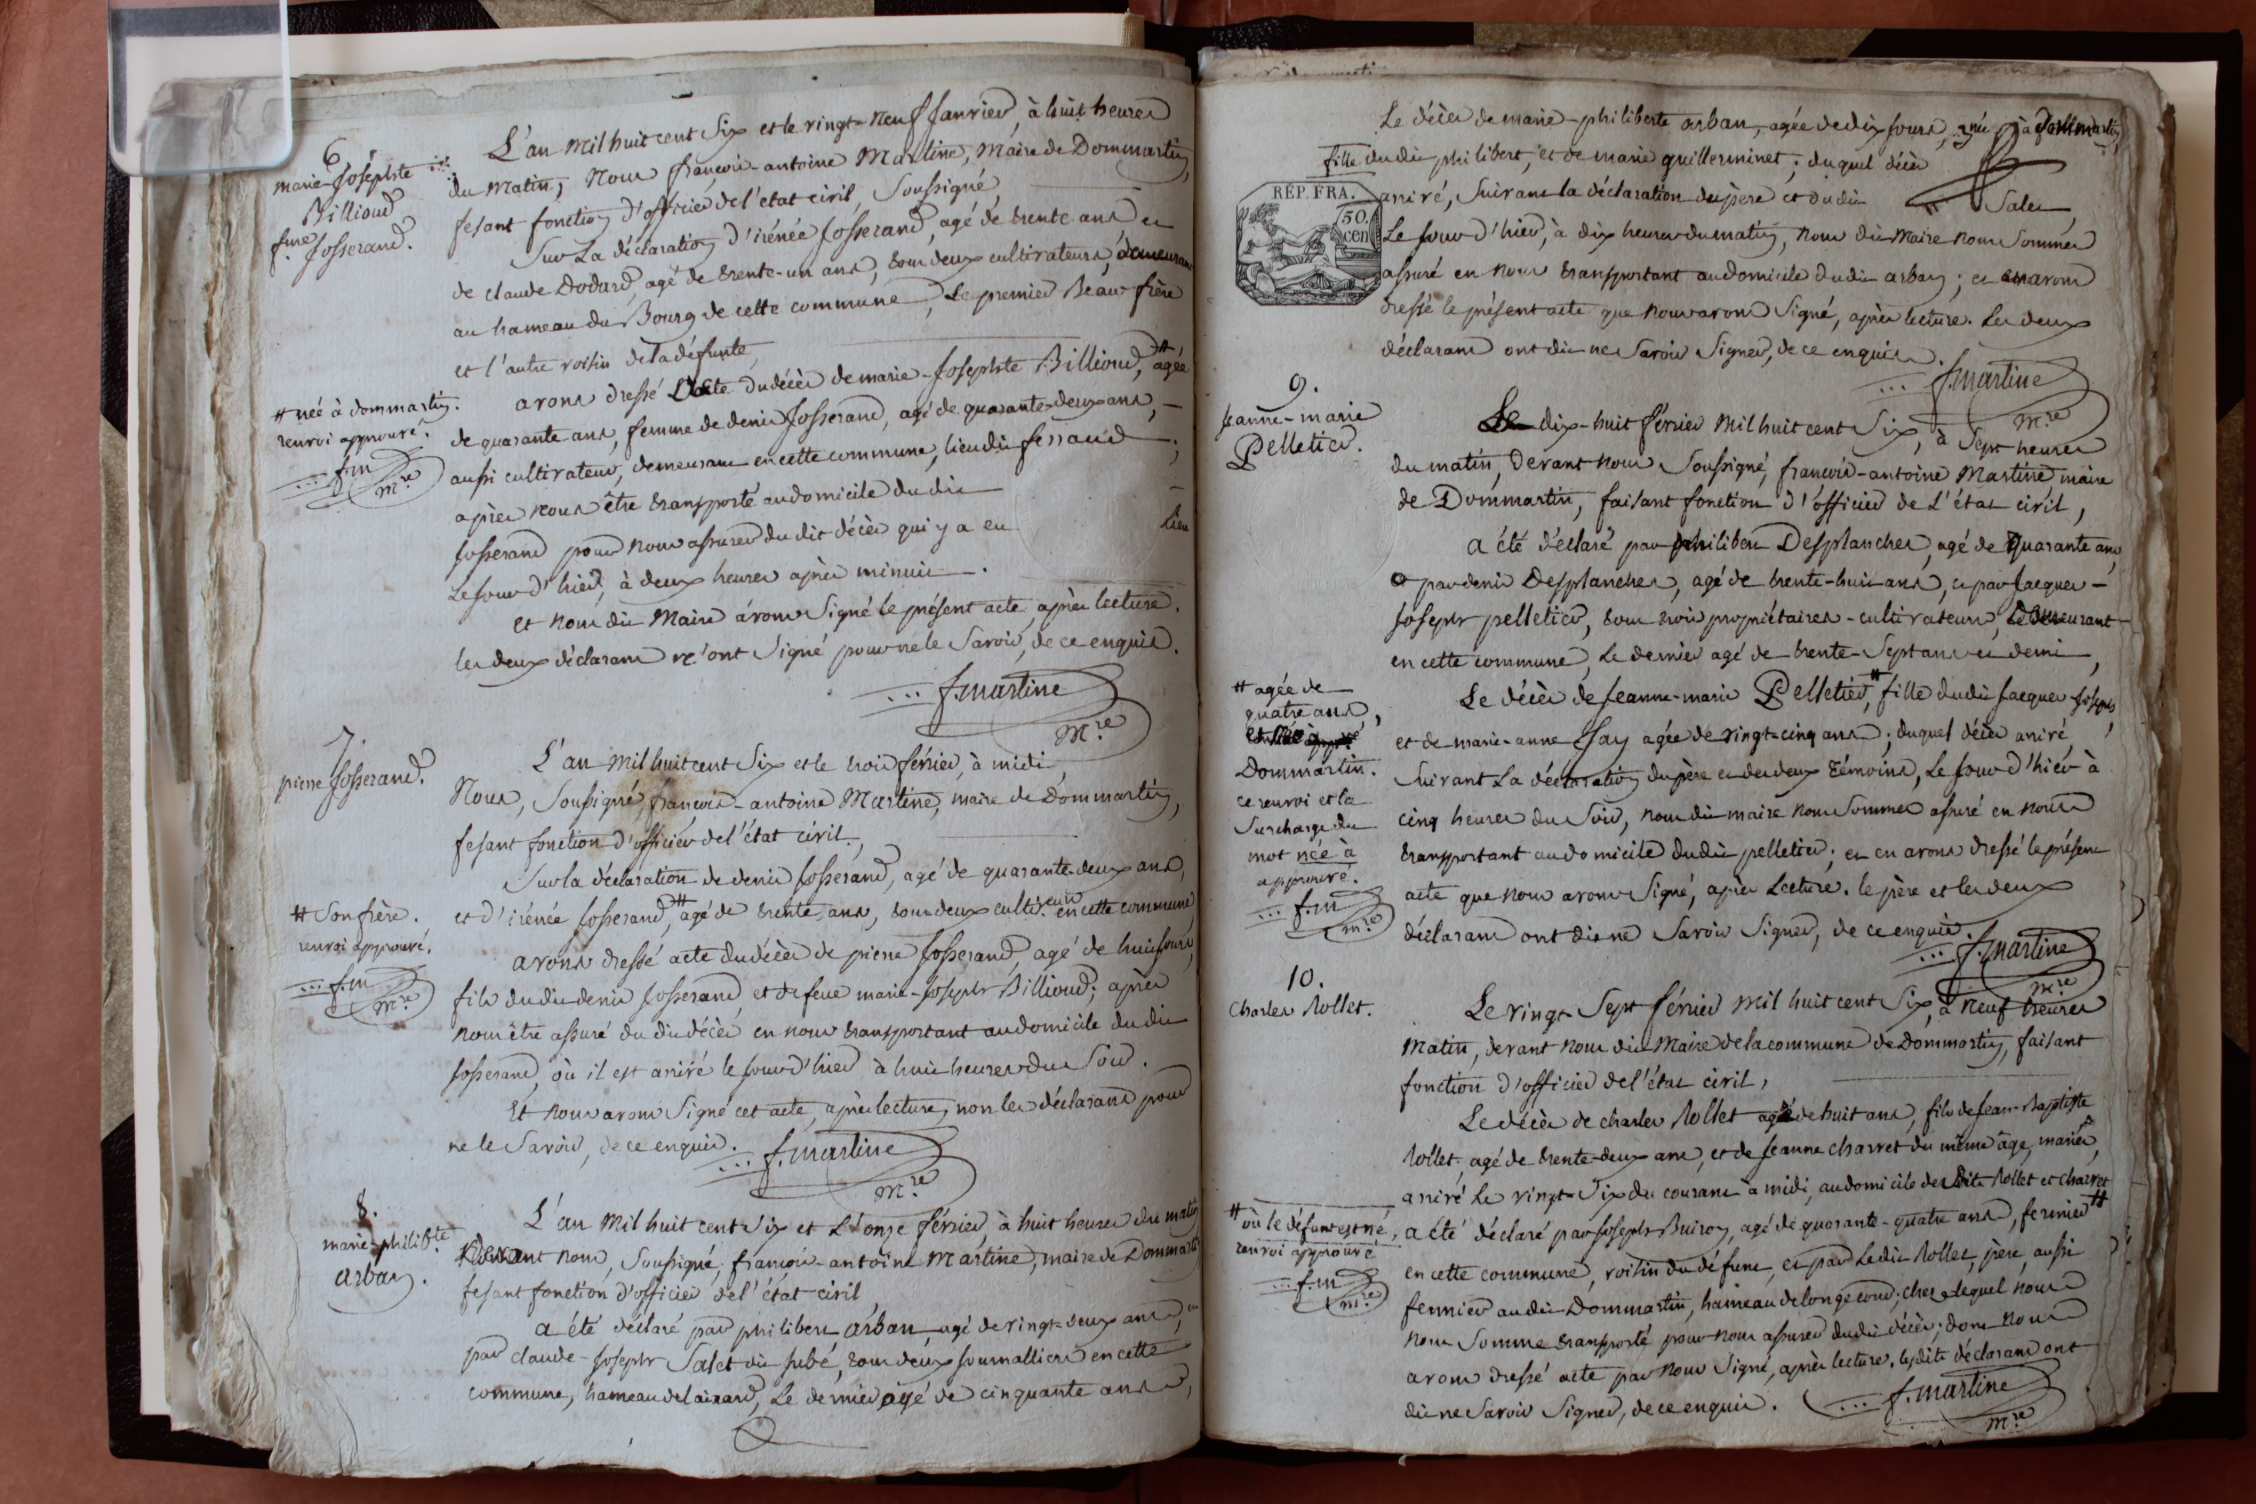 6
marie-Josephte
Billioud
f.me Josserand.
L'an mil huit cent Six et le vingt-neuf Janvier, à huit heures
du matin, Nous françois-antoine Martine, Maire de Dommartin,
fesant fonction d'officier de l'état civil, Soussigné
Sur La déclaration d'irénée Josserand, agé de trente ans, et
de claude Dodard, agé de trente-un ans, tous deux cultivateurs, demeurant
au hameau du Bourg de cette commune, Le premier Beau-frère
et l'autre voisin de la défunte,
avons dressé L'acte du décès de marie-Josephte Billioud, # agée
de quarante ans, femme de denis Josserand, agé de quarante-deux ans,
aussi cultivateur, demeurant en cette commune, lieu dit ferraud
après nous être transporté au domicile du dit
Josserand pour nous assurer du dit décès qui y a eu lieu
Le jour d'hier, à deux heures après minuit.
et nous dit Maire avons Signé le présent acte, après lecture.
les deux déclarans n'ont Signé pour ne le Savoir, de ce enquis.
# née à dommartin.
renvoi approuvé.
f.m
m.re
f.martine
m.re
7.
pierre Josserand.
L'an mil huit cent Six et le trois février, à midi
Nous, Soussigné, françois-antoine Martine, maire de Dommartin,
fesant fonction d'officier de l'état civil.
Sur la déclaration de denis Josserand, agé de quarante-deux ans,
et d'irénée Josserand, # agé de trente ans, tous deux cultiv.eurs en cette commune,
avons dressé acte du décès de pierre Josserand, agé de huit jours,
fils du dit denis Josserand et de feue marie-Joseph Billioud; après
nous être assuré du dit décès en nous transportant au domicile du dit
Josserand, où il est arrivé le jour d'hier à huit heures du Soir.
Et nous avons Signé cet acte, après lecture, non les déclarans pour
ne le Savoir, de ce enquis.
# Son frère.
renvoi approuvé.
f.m
m.re
f.martine
m.re
8.
marie-philib.te
arban.
L'an mil huit cent Six et L'onze février, à huit heures du matin
Devant nous, Soussigné, françois-antoine Martine, maire de Dommartin
fesant fonction d'officier de l'état civil
a été déclaré par philibert arban, agé de vingt-deux ans, et
par claude-Joseph Salet dit Jubé, tous deux journalliers en cette
commune, hameau de , Le dernier agé de cinquante ans,
Le décès de marie-philiberte arban, agée de dix jours, née à dommartin,
fille du dit philibert, et de marie guillerminet; duquel décès
arrivé, Suivant la déclaration du père et du dit Salet
Le jour d'hier, à dix heures du matin, nous dit Maire nous Sommes
assuré en nous transportant au domicile du dit arban; et en avons
dressé le présent acte que nous avons Signé, après lecture. Les deux
déclarans ont dit ne Savoir Signer, de ce enquis.
RÉP. FRA.
50.
cen
f.martine
m.re
9.
Jeanne-marie
Pelletier.
Le dix-huit février mil huit cent Six, à Sept heures
du matin, devant nous Soussigné, françois-antoine Martine maire
de Dommartin, faisant fonction d'officier de L'état civil,
a été déclaré par philibert Desplanches, agé de quarante ans,
par denis Desplanches, agé de trente-huit ans, et par Jacques-
Joseph pelletier, tous trois propriétaires-cultivateurs, demeurant
en cette commune, Le dernier agé de trente-Sept ans et demi,
Le décès de Jeanne-marie Pelletier, # fille du dit Jacques Joseph
et de marie-anne Jay agée de vingt-cinq ans; duquel décès arrivé,
Suivant La déclaration du père et des deux témoins, Le jour d'hier à
cinq heures du Soir, nous dit maire nous Sommes assuré en nous
transportant au domicile du dit pelletier; et en avons dressé le présent
acte que nous avons Signé, après Lecture. le père et les deux
déclarans ont dit ne Savoir Signer, de ce enquis.
# agée de
quatre ans,
et née à
Dommartin.
ce renvoi et la
Surcharge du
mot née à
approuvé.
f.m
m.re
f.martine
m.re
10.
Charles Rollet.
Le vingt Sept février mil huit cent Six, à neuf heures
Matin, devant nous dit Maire de la commune de Dommartin, faisant
fonction d'officier de l'état civil,
Le décès de charles Rollet agé de huit ans, fils de Jean-Baptiste
Rollet, agé de trente-deux ans, et de Jeanne charvet du même âge, mariés,
arrivé Le vingt-Six du courant à midi, au domicile des dits Rollet et charvet #
a été déclaré par Joseph Buiron, agé de quarante-quatre ans, fermier
en cette commune, voisin du défunt, et par Le dit Rollet, père, aussi
fermier au dit Dommartin, hameau de longecour; chez lequel nous
nous Somme transporté pour nous assurer du dit décès; dont nous
avons dressé acte par nous Signé, après lecture. les dits déclarans ont
dit ne Savoir Signer, de ce enquis.
# où le défunt est né,
renvoi approuvé
f.m
m.re
f.martine
m.re